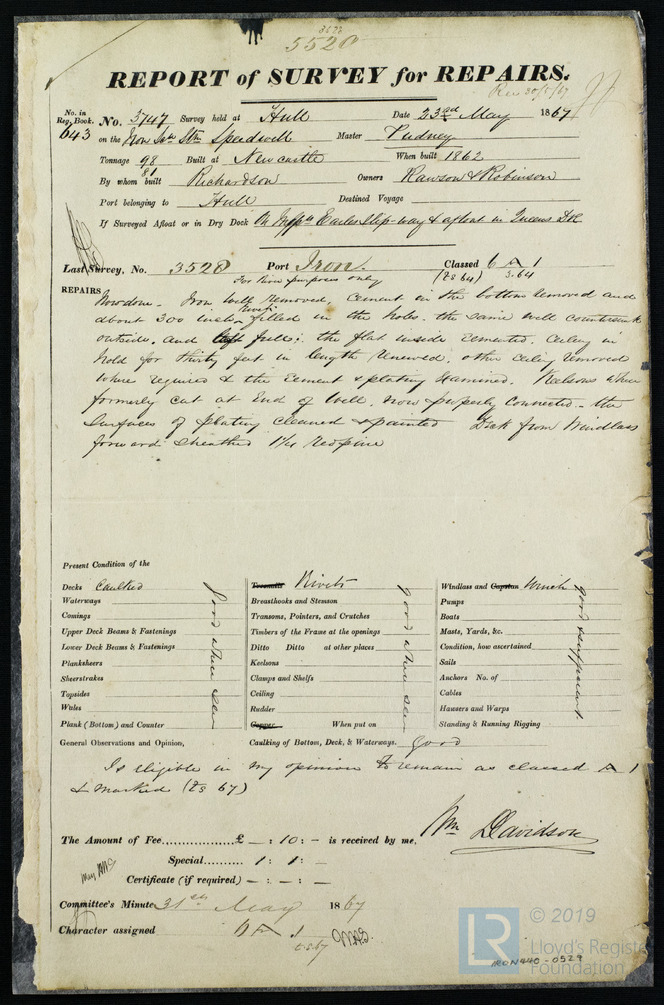 5520
REPORT of SURVEY for REPAIRS.
Rec 30/5/67
No. in Reg. Book.
643
No. 3747 Survey held at Hull Date 23rd May 1867
on the Iron Sr Speedwell Master Pudney
Tonnage 98 Built at Newcastle When built 1862
81
By whom built Richardson Owners Rawson & Robinson
Port belonging to Hull Destined Voyage
If Surveyed Afloat or in Dry Dock On Messrs Earles Slip-way & afloat in Queens Dk
Last Survey, No. 3528 Port Iron. Classed 6 A 1
(Ts 64) 3.64
REPAIRS
Now done. Iron Well removed, cement in the bottom removed and
about 300 rivets filled in the holes. the same well countersunk
outside, and full; the flat inside cemented. Ceiling in
hold for thirty feet in length renewed, other ceiling removed
where required & the cement & plating examined. Keelsons where
formerly cut at end of Well. now properly connected. the
surfaces of plating cleaned & painted Deck from Windlass
forward sheathed 1 1/4 Redpine
Present Condition of the
Decks Caulked
Waterways
Comings
Upper Deck Beams & Fastenings
Lower Deck Beams & Fastenings
Planksheers
Sheerstrakes
Topsides
Wales
Plank (Bottom) and Counter
good where seen
Treenails Rivets
Breasthooks and Stemson
Transoms, Pointers, and Crutches
Timbers of the Frame at the openings
Ditto Ditto at other places
Keelsons
Clamps and Shelfs
Ceiling
Rudder
Copper When put on
good where seen
Windlass and Capstan Winch
Pumps
Boats
Masts, Yards, &c.
Condition, how ascertained
Sails
Anchors No. of
Cables
Hawsers and Warps
Standing & Running Rigging
good & sufficient
General Observations and Opinion, Caulking of Bottom, Deck, & Waterways. good
Is eligible in my opinion to remain as classed A 1
& marked (Ts 67)
The Amount of Fee................£ – : 10 : – is received by me,
Wm Davidson
Special.......... 1 : 1 : –
Certificate (if required) – : – : –
Committee's Minute 31st May 1867
Character assigned 6 A 1
© 2019
LR
Lloyd's Register
Foundation
IRON440-0529